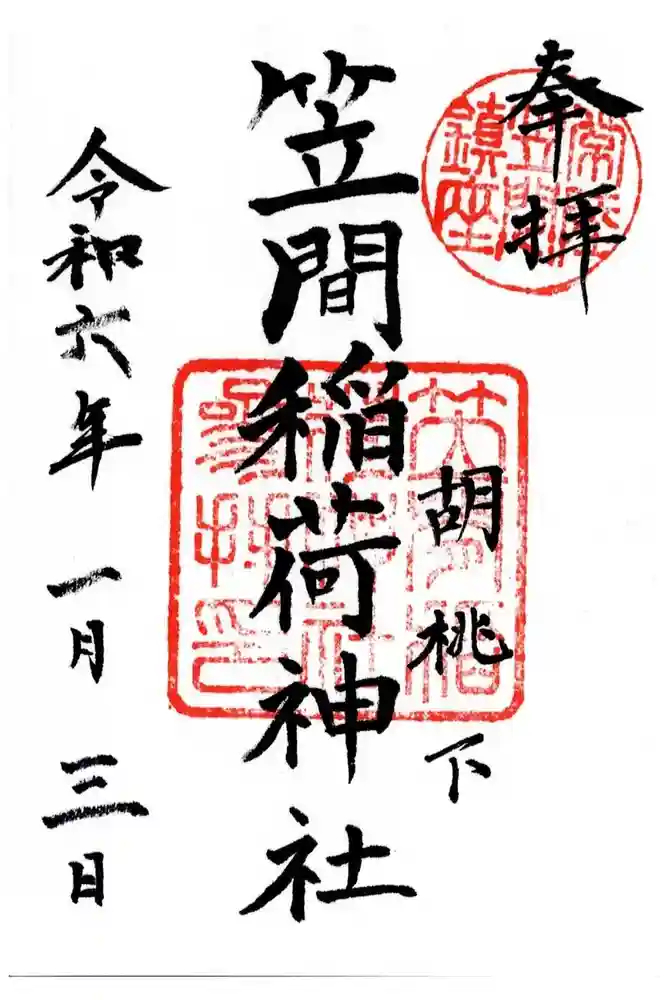 奉拝
常陸
笠間
鎮座
胡桃下
笠間稲荷神社
笠間稲
荷神社
令和六年 一月 三日